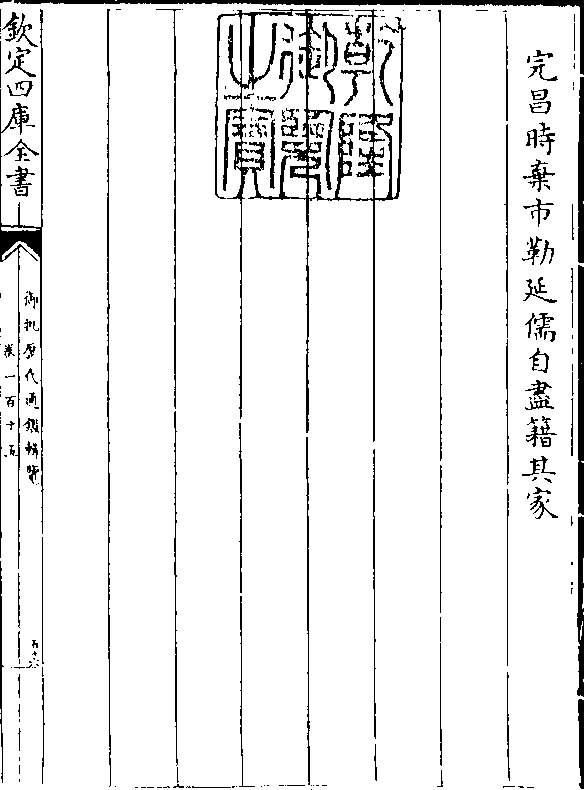 完昌時棄市勒延儒自盡籍其家
乾隆
御覽
之寶
欽定四庫全書
御批歷代通鑑輯覽
卷一百十五
五十六